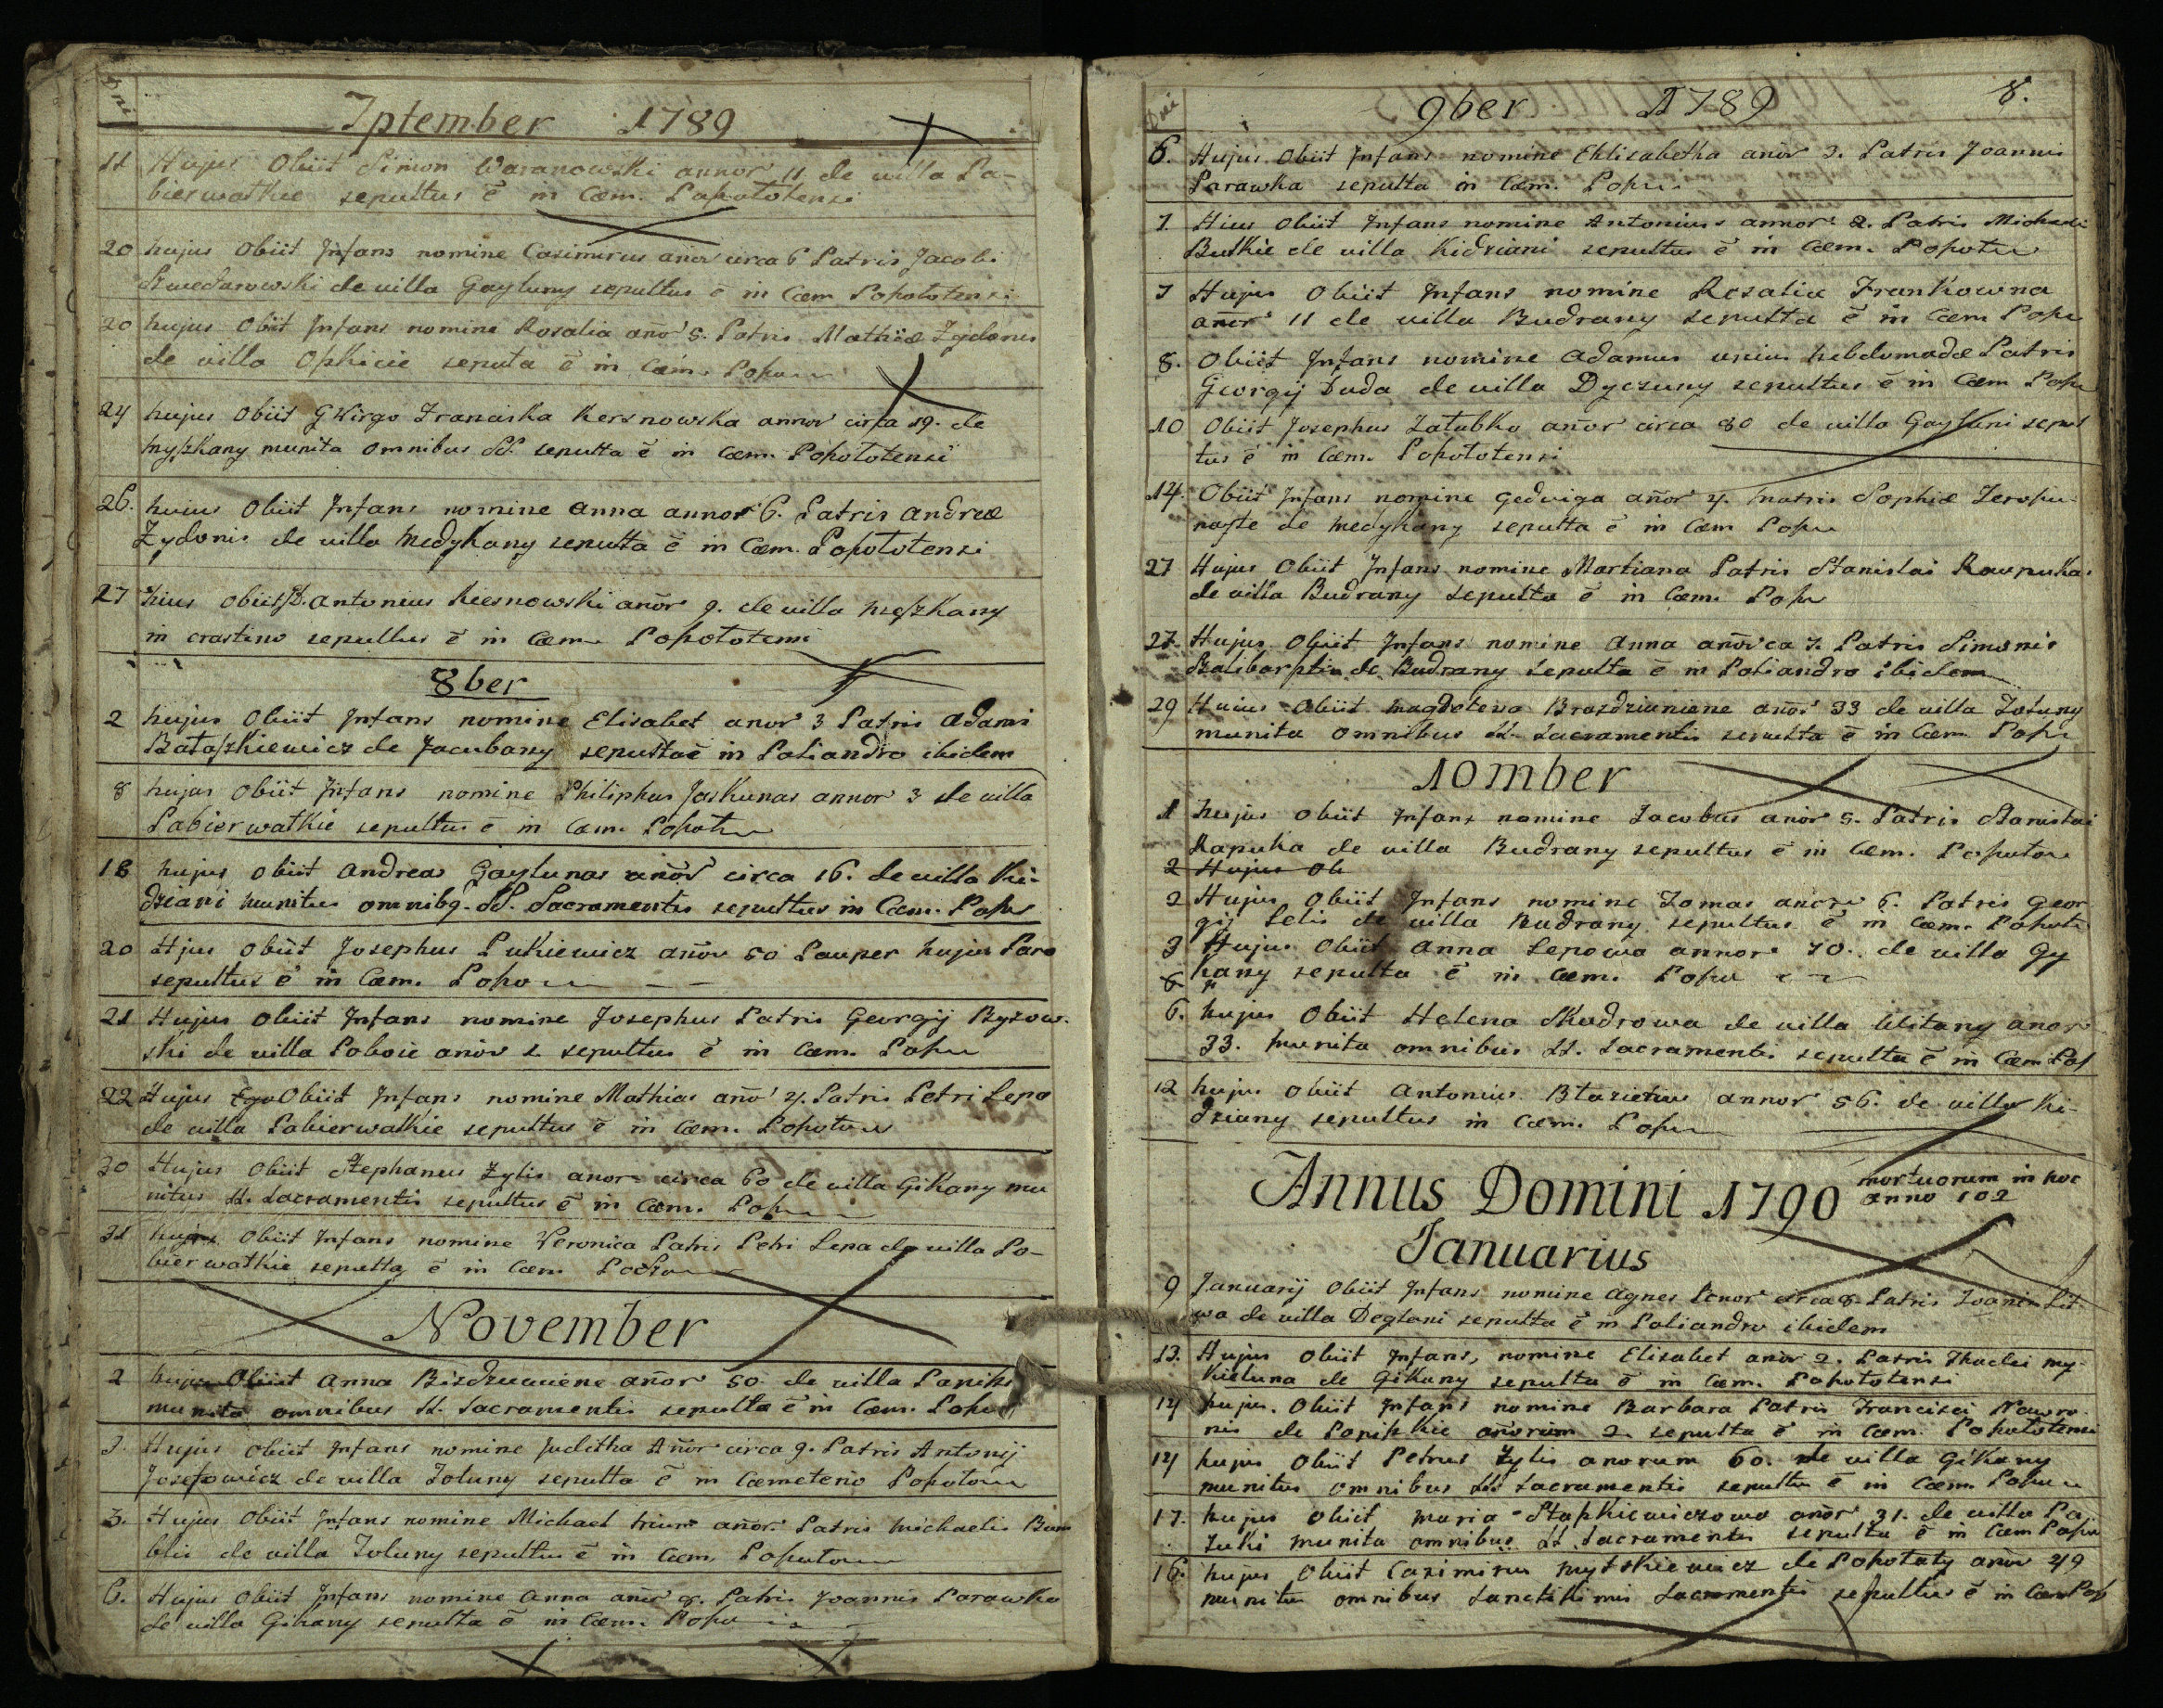 Dni
7ptember 1789
11 Hujus Obiit Simon Waranowski annor 11 de villa Pa-
bierwatkie sepultus ē in Cœm. Popołotensi
20 hujus Obiit Infans nomine Casimirus añor circa 6 Patris Jacobi
de villa Gayluny sepultus ē in Cœm Popołotensi
20 hujus Obiit Infans nomine Rosalia año 5. Patris Mathiæ Zydonis
de villa Opkicie sepulta ē in Cœm. Popo
24 hujus Obiit Virgo Franciska Kersnowska annor circa 19. de
Myszkany munita omnibus SS. sepulta ē in Cœm. Popołotensi
26. huius Obiit Infans nomine Anna annor 6. Patris Andreæ
Zydonis de villa Medykany sepulta ē in Cœm. Popołotensi
27 hius Obiit Antonius Kiersnowski añor 9. de villa Myszkany
in crastino sepultus ē in Cœm Popołotensi
8ber
2 hujus Obiit Infans nomine Elisabet anor 3 Patris Adami
Bałaszkiewicz de Jacubany sepulta ē in Poliandro ibidem
8 hujus Obiit Infans nomine Philiphus Jaskunas annor 3 de villa
Pabierwatkie sepultus ē in Cœm. Popoł
18 hujus obiit Andreas Gaylunas añor circa 16. de villa Ki-
dziani munitus omnibq. SS. Sacramentis sepultus in Cœm. Popo
20 Hjus obiit Josephus Putkiewicz añor 50 Pauper hujus Paro
sepultus ē in Cœm. Popo
21 Hujus obiit Infans nomine Josephus Patris Georgij Ryzow-
ski de villa Poboie añor 2 sepultus ē in Cœm. Popo
22 Hujus Obiit Infans nomine Mathias año 4. Patris Petri Lepa
de villa Pabierwatkie sepultus ē in Cœm. Popoto
30 Hujus Obiit Stephanus Zylis anor circa 60 de villa Gikany mu
nitus SS. Sacramentis sepultus ē in Cœm. Popo
31 hujus Obiit Infans nomine Veronica Patris Petri Lepa de villa Pa-
bierwatkie sepulta ē in Cœm
November
2 hujus Obiit Anna añor 50. de villa
munita omnibus SS. Sacramentis sepulta ē in Cœm. Popo
3. Hujus Obiit Infans nomine Juditha Añor circa 9. Patris Antonij
Josefowicz de villa Toluny sepulta ē in Cœmeterio Popoto
3. Hujus Obiit Infans nomine Michael trium añor. Patris Michaelis
de villa Toluny sepultus ē in Cœm. Popoto
6. Hujus Obiit Infans nomine Anna añor 8. Patris Joannis Parawka
de villa Gikany sepulta ē in Cœm. Popo
Dni
9ber 1789
8.
6. Hujus Obiit Infans nomine Ehlisabetha añor 3. Patris Joannis
Parawka sepulta in Cœm. Popo
7. Hius Obiit Infans nomine Antonius annor 2. Patris Michaeli
Butkie de villa Kidziani sepultus ē in Cœm. Popoto
7 Hujus Obiit Infans nomine Rosalia Frankowna
añor 11 de villa Budrany sepulta ē in Cœm Popo
8. Obiit Infans nomine Adamus unius hebdomadæ Patris
Georgij Duda de villa Dyczuny sepultus ē in Cœm Popo
10 Obiit Josephus Załubka añor circa 80 de villa Gayluni sepul
tus ē in Cœm. Popołotensi
14. Obiit Infans nomine Gedviga añor 4. Matris Sophiæ
de Medykany sepulta ē in Cœm Popo
27 Hujus Obiit Infans nomine Martiana Patris Stanislai Raupuka
de villa Budrany sepulta ē in Cœm. Popo
27. Hujus Obiit Infans nomine Anna añor ca 7. Patris Simonis
de Budrany sepulta ē in Poliandro ibidem
29 Huius Obiit Magdolena Brazdziuniene añor 33 de villa Toluny
munita omnibus SS. Sacramentis sepulta ē in Cœm. Popo
10mber
1 hujus Obiit Infans nomine Jacobus añor 5. Patris Stanislai
Rapuka de villa Budrany sepultus ē in Cœm. Popoto
2 Hujus Ob
2 Hujus Obiit Infans nomine Tomas anor 6. Patris Geor
gij Lelis de villa Budrany sepultus ē in Cœm. Popoto
3 Hujus Obiit Anna Lepowa annor 70. de villa Gy
kany sepulta ē in Cœm. Popo
6. hujus Obiit Helena Skudrowa de villa Ulitany anor
33. munita omnibus SS. Sacramentis sepulta ē in Cœm Pop
12 hujus Obiit Antonius annor 56. de villa Ki-
dziany sepultus in Cœm. Popo
Annus Domini 1790
mortuorum in hoc
anno 102
Januarius
9 Januarij Obiit Infans nomine Agnes anor circa 8. Patris Joanis Lit
wa de villa Deglani sepulta ē in Poliandro ibidem
13. Hujus Obiit Infans, nomine Elisabet anor 2. Patris Thadei My-
kieluna de Gikany sepulta ē in Cœm. Popołotensi
14 hujus. Obiit Infans nomine Barbara Patris Francisci Nawro
nis de Paniszkie añorum 2 sepulta ē in Cœm. Popołotensi
14 hujus Obiit Petrus Zylis anorum 60. de villa Gikany
munitus omnibus SS Sacramentis sepultus ē in Cœm. Popo
17. hujus Obiit Maria Stapkiewiczowa añor 31. de villa Pa
zuki munita omnibus SS. Sacramentis sepulta ē in Cœm Popo
16. hujus Obiit Casimirus Mytskiewicz de Popołaty añor 49
munitus omnibus Sanctissimis Sacramentis sepultus ē in Cœm Pop